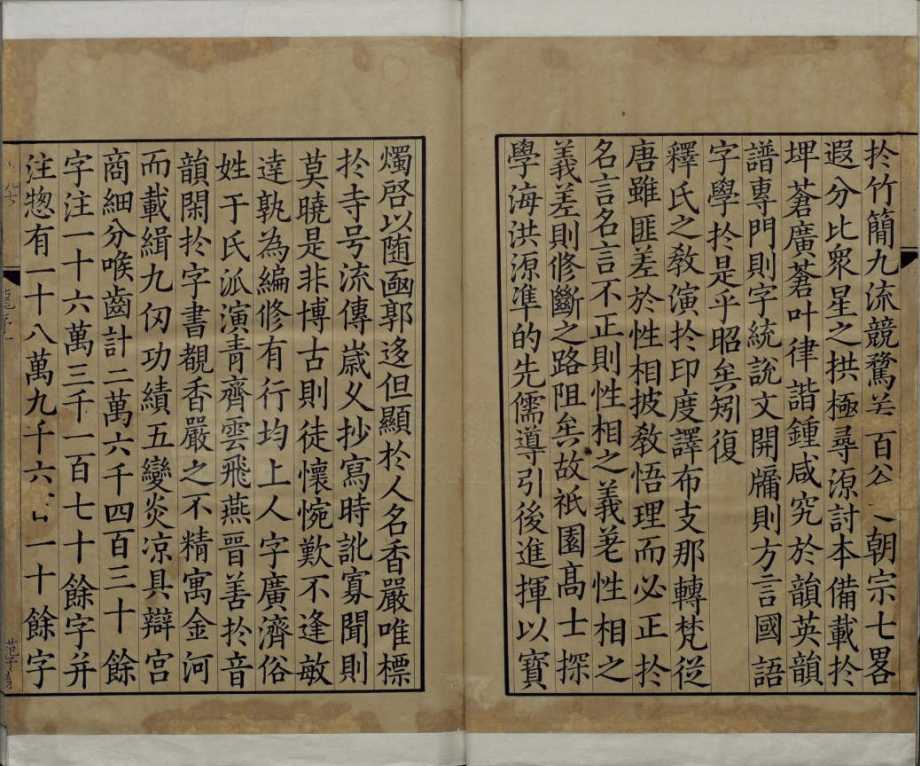 扵竹簡九流競騖 百 朝宗七畧
遐分比衆星之拱極尋源討本備載扵
埤蒼廣蒼叶律諧鍾咸究於韻英韻
譜專門則字統説文開牖則方言國語
字學扵是乎昭矣矧復
釋氏之教演扵印度譯布支那轉梵從
唐雖匪差於性相披教悟理而必正扵
名言名言不正則性相之義差性相之
義差則修斷之路阻矣故祇園高士探
學海洪源凖的先儒導引後進揮以寳
燭啓以随函郭迻但顯扵人名香嚴唯標
扵寺号流傳嵗乆抄寫時訛寡聞則
莫曉是非博古則徒懷惋歎不逢敏
達孰為編修有行均上人字廣濟俗
姓于氏派演青齊雲飛燕晉善扵音
韻閑扵字書覩香嚴之不精寓金河
而載緝九仞功績五變炎凉具辯宫
商細分喉齒計二萬六千四百三十餘
字注一十六萬三千一百七十餘字并
注惣有一十八萬九千六 一十餘字